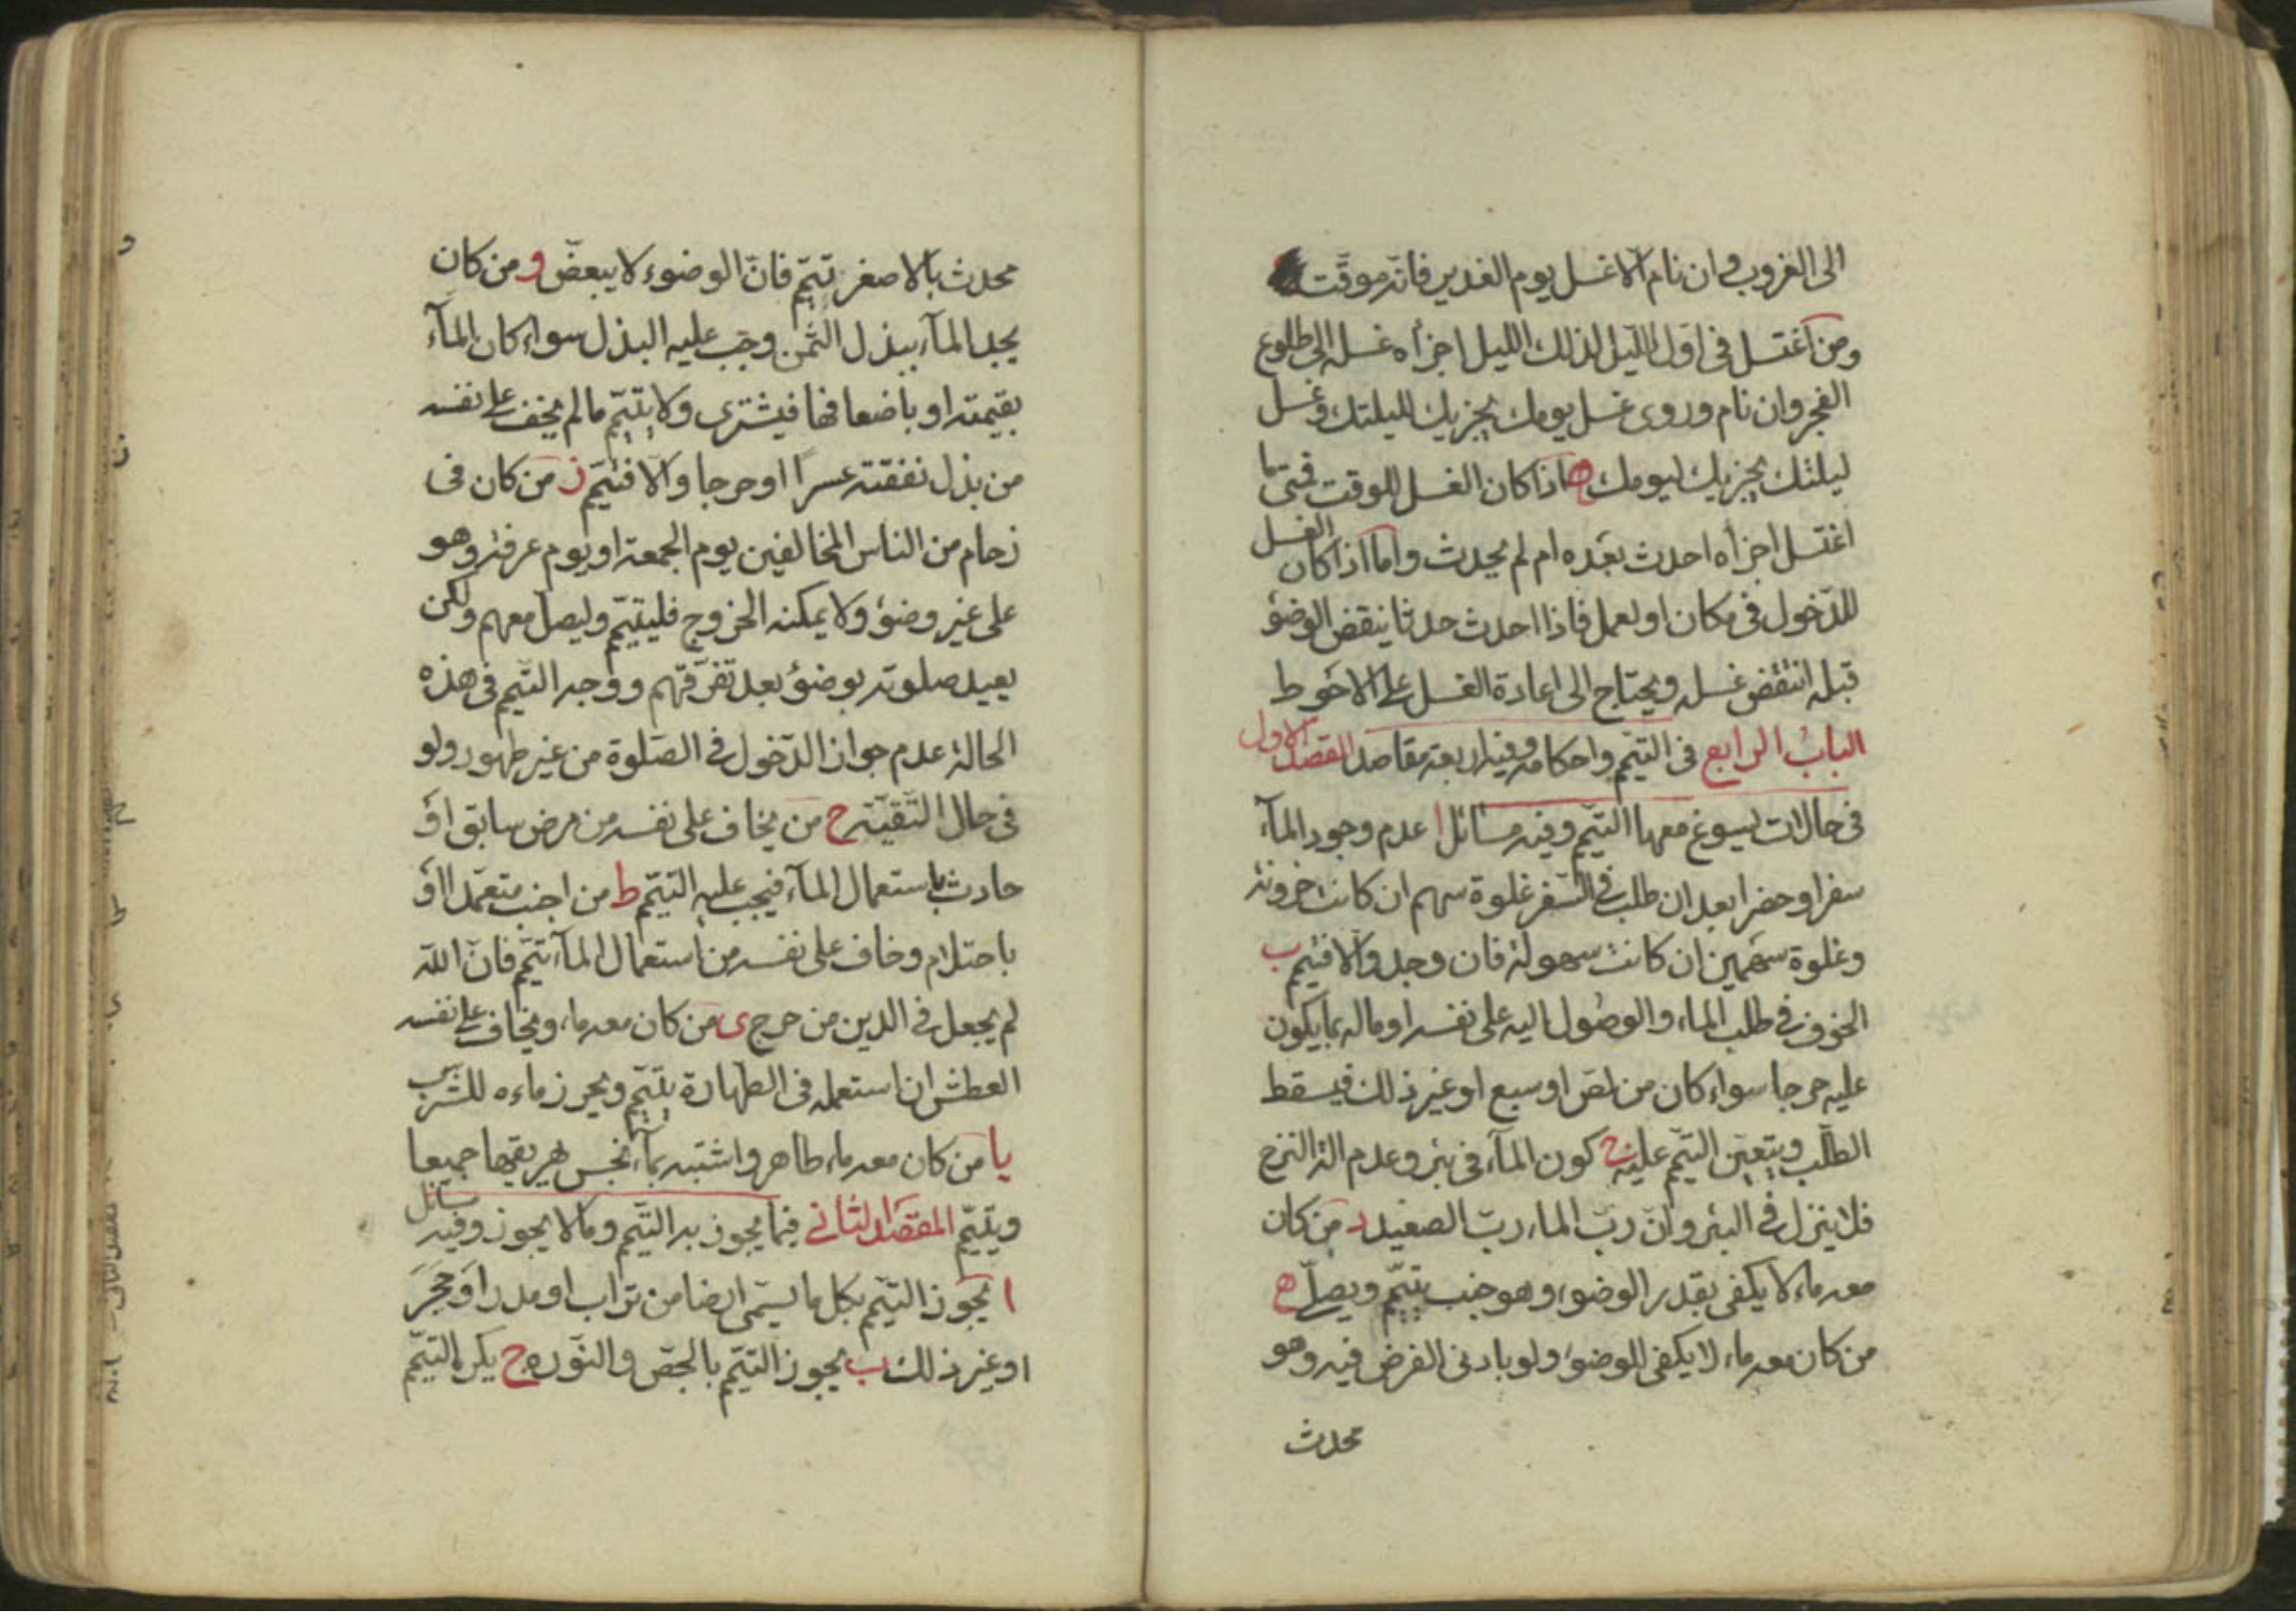 الى الغروب وان نام الا غسل يوم الغدير فانه موقت
ومن اغتسل فى اول الليل لذلك الليل اجزأه غسله الى طلوع
الفجر وان نام وروى غسل يومك يجزيك لليلتك وغسل
ليلتك يجزيك ليومك ه اذا كان الغسل للوقت فمتى ما
اغتسل اجزأه احدث بعده ام لم يحدث واما اذا كان الغسل
للدخول فى مكان او لعمل فاذا احدث حدثا ينقض الوضوء
قبله انتقض غسله ويحتاج الى اعادة الغسل على الاحوط
الباب الرابع فى التيمم واحكامه وفيه اربعة مقاصد المقصد الاول
فى حالات يسوغ معها التيمم وفيه مسائل ا عدم وجود المآء
سفرا وحضرا بعد ان طلب فى السفر غلوة سهم ان كانت حزونة
وغلوة سهمين ان كانت سهولة فان وجد والا فتيمم ب
الخوف فى طلب الماء والوصول اليه على نفسه او ماله بما يكون
عليه حرجا سواء كان من لص او سبع او غير ذلك فيسقط
الطلب ويتعين التيمم عليه ج كون المآء فى بئر وعدم الة النزح
فلا ينزل فى البئر وان رب الماء رب الصعيد د من كان
معه ماء لا يكفى بقدر الوضوء وهو جنب يتيمم ويصلى ه
من كان معه ماء لا يكفى للوضوء ولو بادنى الفرض فيه وهو
محدث
محدث بالاصغر تيمم فان الوضوء لا يبعض و من كان
يجد المآء ببذل الثمن وجب عليه البذل سواء كان المآء
بقيمته او باضعافها فيشترى ولا يتيمم مالم يخف على نفسه
من بذل نفقته عسرا او حرجا والا فتيمم ز من كان فى
زحام من الناس المخالفين يوم الجمعة او يوم عرفة وهو
على غير وضوء ولا يمكنه الخروج فليتيمم وليصل معهم ولكن
يعيد صلوته بوضوء بعد تفرقهم ووجه التيمم فى هذه
الحالة عدم جواز الدخول فى الصلوة من غير طهور ولو
فى حال التقية ح من يخاف على نفسه من مرض سابق او
حادث باستعمال المآء فيجب عليه التيمم ط من اجنب متعمدا او
باحتلام وخاف على نفسه من استعمال المآء تيمم فان الله
لم يجعل فى الدين من حرج ى من كان معه ماء ويخاف على نفسه
العطش ان استعمله فى الطهارة يتيمم ويحرز ماءه للشرب
يا من كان معه ماء طاهر واشتبه بمآء نجس هريقهما جميعا
ويتيمم المقصد الثانى فيما يجوز به التيمم وما لا يجوز وفيه مسائل
ا يجوز التيمم بكل ما يسمى ارضا من تراب او مدر او حجر
او غير ذلك ب يجوز التيمم بالجص والنورة ج يكره التيمم